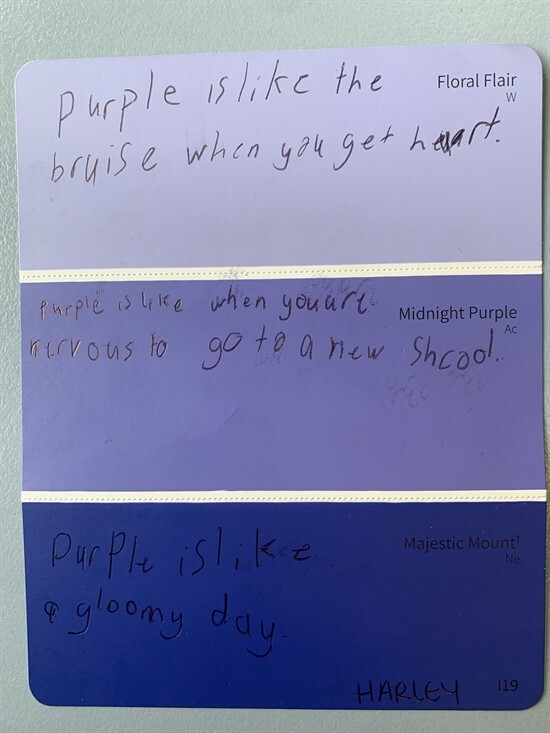 Purple is like the
Floral Flair
W
bruise when you get heuart.
purple is like when you are
Midnight Purple
Ac
nervous to go to a new Shcool.
Purple is like
Majestic Mount
Ne
a gloomy day.
HARLEY
I19